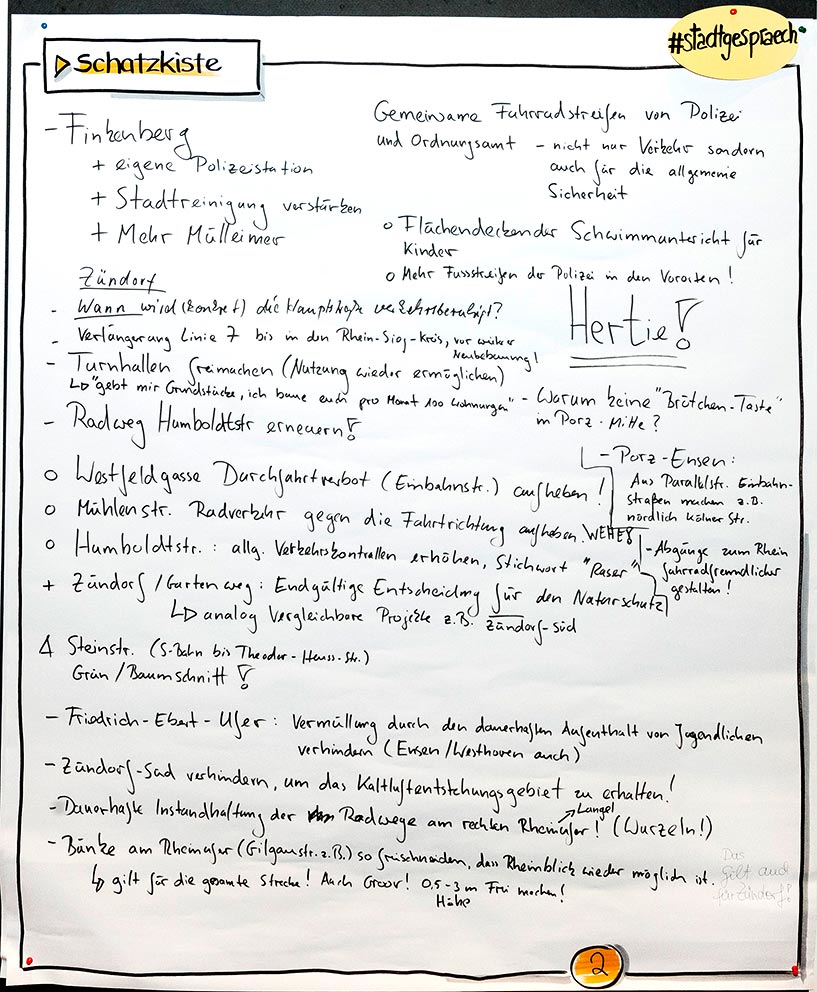 #stadtgespraech
Schatzkiste
- Finkenberg
+ eigene Polizeistation
+ Stadtreinigung verstärken
+ Mehr Mülleimer
Gemeinsame Fahrradstreifen von Polizei
und Ordnungsamt - nicht nur Verkehr sondern
auch für die allgemeine
Sicherheit
o Flächendeckender Schwimmunterricht für
Kinder
o Mehr Fussstreifen der Polizei in den Vororten!
Hertie!
Zündorf
- Wann wird (konkret) die Hauptstraße verkehrsberuhigt?
- Verlängerung Linie 7 bis in den Rhein-Sieg-Kreis, vor weiterer
Neubebauung!
- Turnhallen freimachen (Nutzung wieder ermöglichen)
↳ "gebt mir Grundstücke, ich baue euch pro Monat 100 Wohnungen"
- Radweg Humboldtstr erneuern!
- Warum keine "Brötchen-Taste"
in Porz-Mitte?
- Porz-Ensen:
Aus Parallelstr. Einbahn-
straßen machen z.B.
nördlich Kölner Str.
- Abgänge zum Rhein
fahrradfreundlicher
gestalten!
o Westfeldgasse Durchfahrtverbot (Einbahnstr.) aufheben!
o Mühlenstr. Radverkehr gegen die Fahrtrichtung aufheben.
o Humboldtstr.: allg. Verkehrskontrollen erhöhen, Stichwort "Raser"
+ Zündorf/Gartenweg: Endgültige Entscheidung für den Naturschutz
↳ analog Vergleichbare Projekte z.B. Zündorf-Süd
Δ Steinstr. (S-Bahn bis Theodor-Heuss-Str.)
Grün/Baumschnitt!
- Friedrich-Ebert-Ufer: Vermüllung durch den dauerhaften Aufenthalt von Jugendlichen
verhindern (Ensen/Westhoven auch)
- Zündorf-Süd verhindern, um das Kaltluftentstehungsgebiet zu erhalten!
- Dauerhafte Instandhaltung der Radwege am rechten Rheinufer! (Wurzeln!)
→ Langel
- Bänke am Rheinufer (Gilgaustr. z.B.) so freischneiden, dass Rheinblick wieder möglich ist.
↳ gilt für die gesamte Strecke! Auch Groov! 0,5-3 m Frei machen!
Höhe
Das
gilt auch
für Zündorf!
2